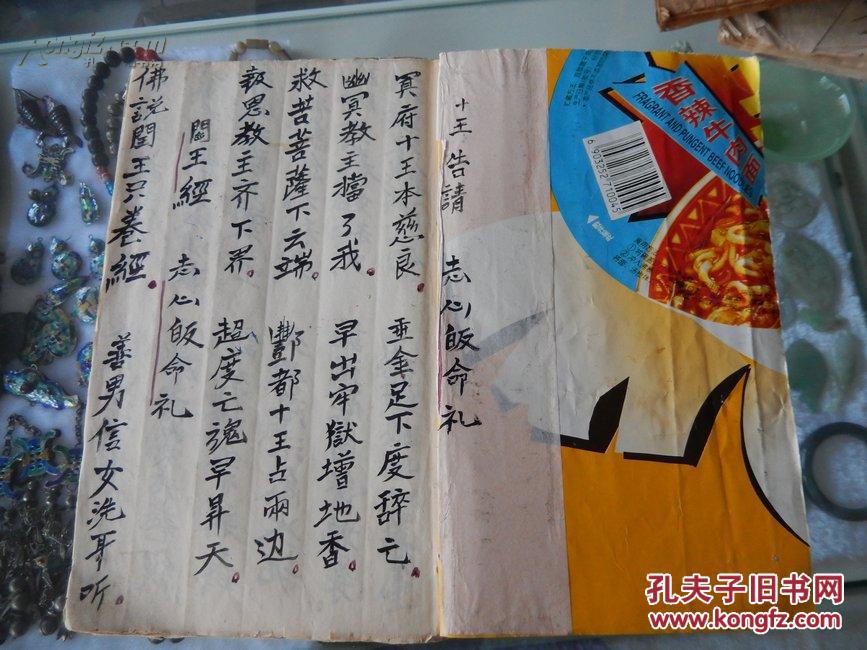 十王告請 志心皈命礼
冥府十王本慈良 垂金足下度辞亡
幽冥教主擋了我 早出牢獄增地香
救苦菩薩下云端 酆都十王占兩边
教主齐下界 超度亡魂早昇天
閻王經 志心皈命礼
佛說閻王只卷經 善男信女洗耳听
香辣牛肉面
FRAGRANT AND PUNGENT BEEF NOODLE
6 903252 710045
kongfz.com
孔夫子旧书网
www.kongfz.com